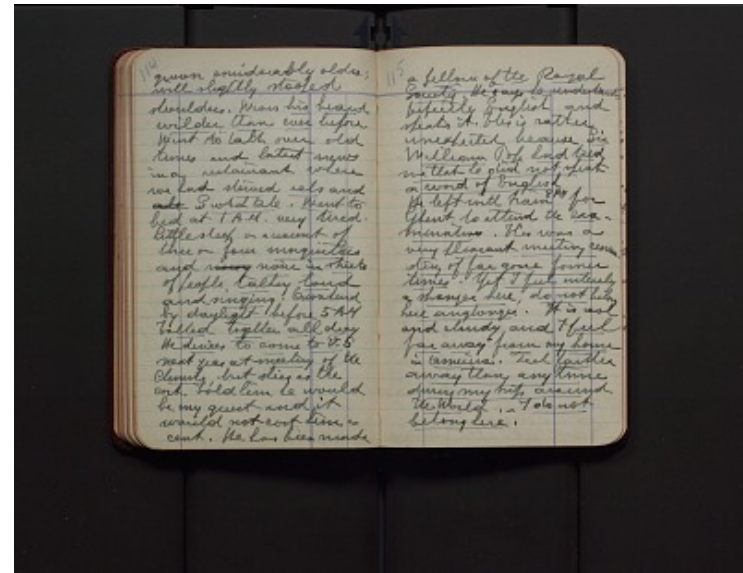 114
grown considerably older,
still slightly stooped
shoulders. Wears his beard
wilder than ever before
Went to talk over old
times and latest news
in a restaurant where
we had stewed eels and
Went to
bed at 1 A.M. very tired.
Little sleep on account of
three or four mosquitoes
and noise in streets
of people talking loud
and singing.
by daylight before 5 A.M
Talked together all day
He desires to come to U.S
next year at meeting of the
but
cost. Told him he would
be my guest and it
would not cost him a
cent. He has been made
115
a fellow of the Royal
Society. He says he understands
perfectly English and
speaks it. This is rather
unexpected because Sir
William Pope had told
me that he did not speak
a word of English
He left with train for
Ghent to attend the exa-
minations. This was a
very pleasant meeting
of far gone former
times. Yet I feel entirely
a stranger here, do not belong
here any longer. It is
and cloudy and I feel
far away from my home
in America. Feel farther
away than any time
during my trip around
the World. I do not
belong here.